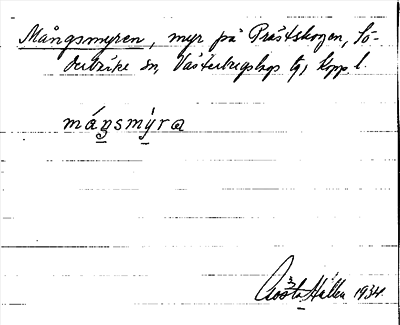 Mångsmyren, myr på Prästskogen, Sö-
derbärke sn, Västerbergslags tg, Kopp. l.
måŋsmýra
Gösta Hallen 1934